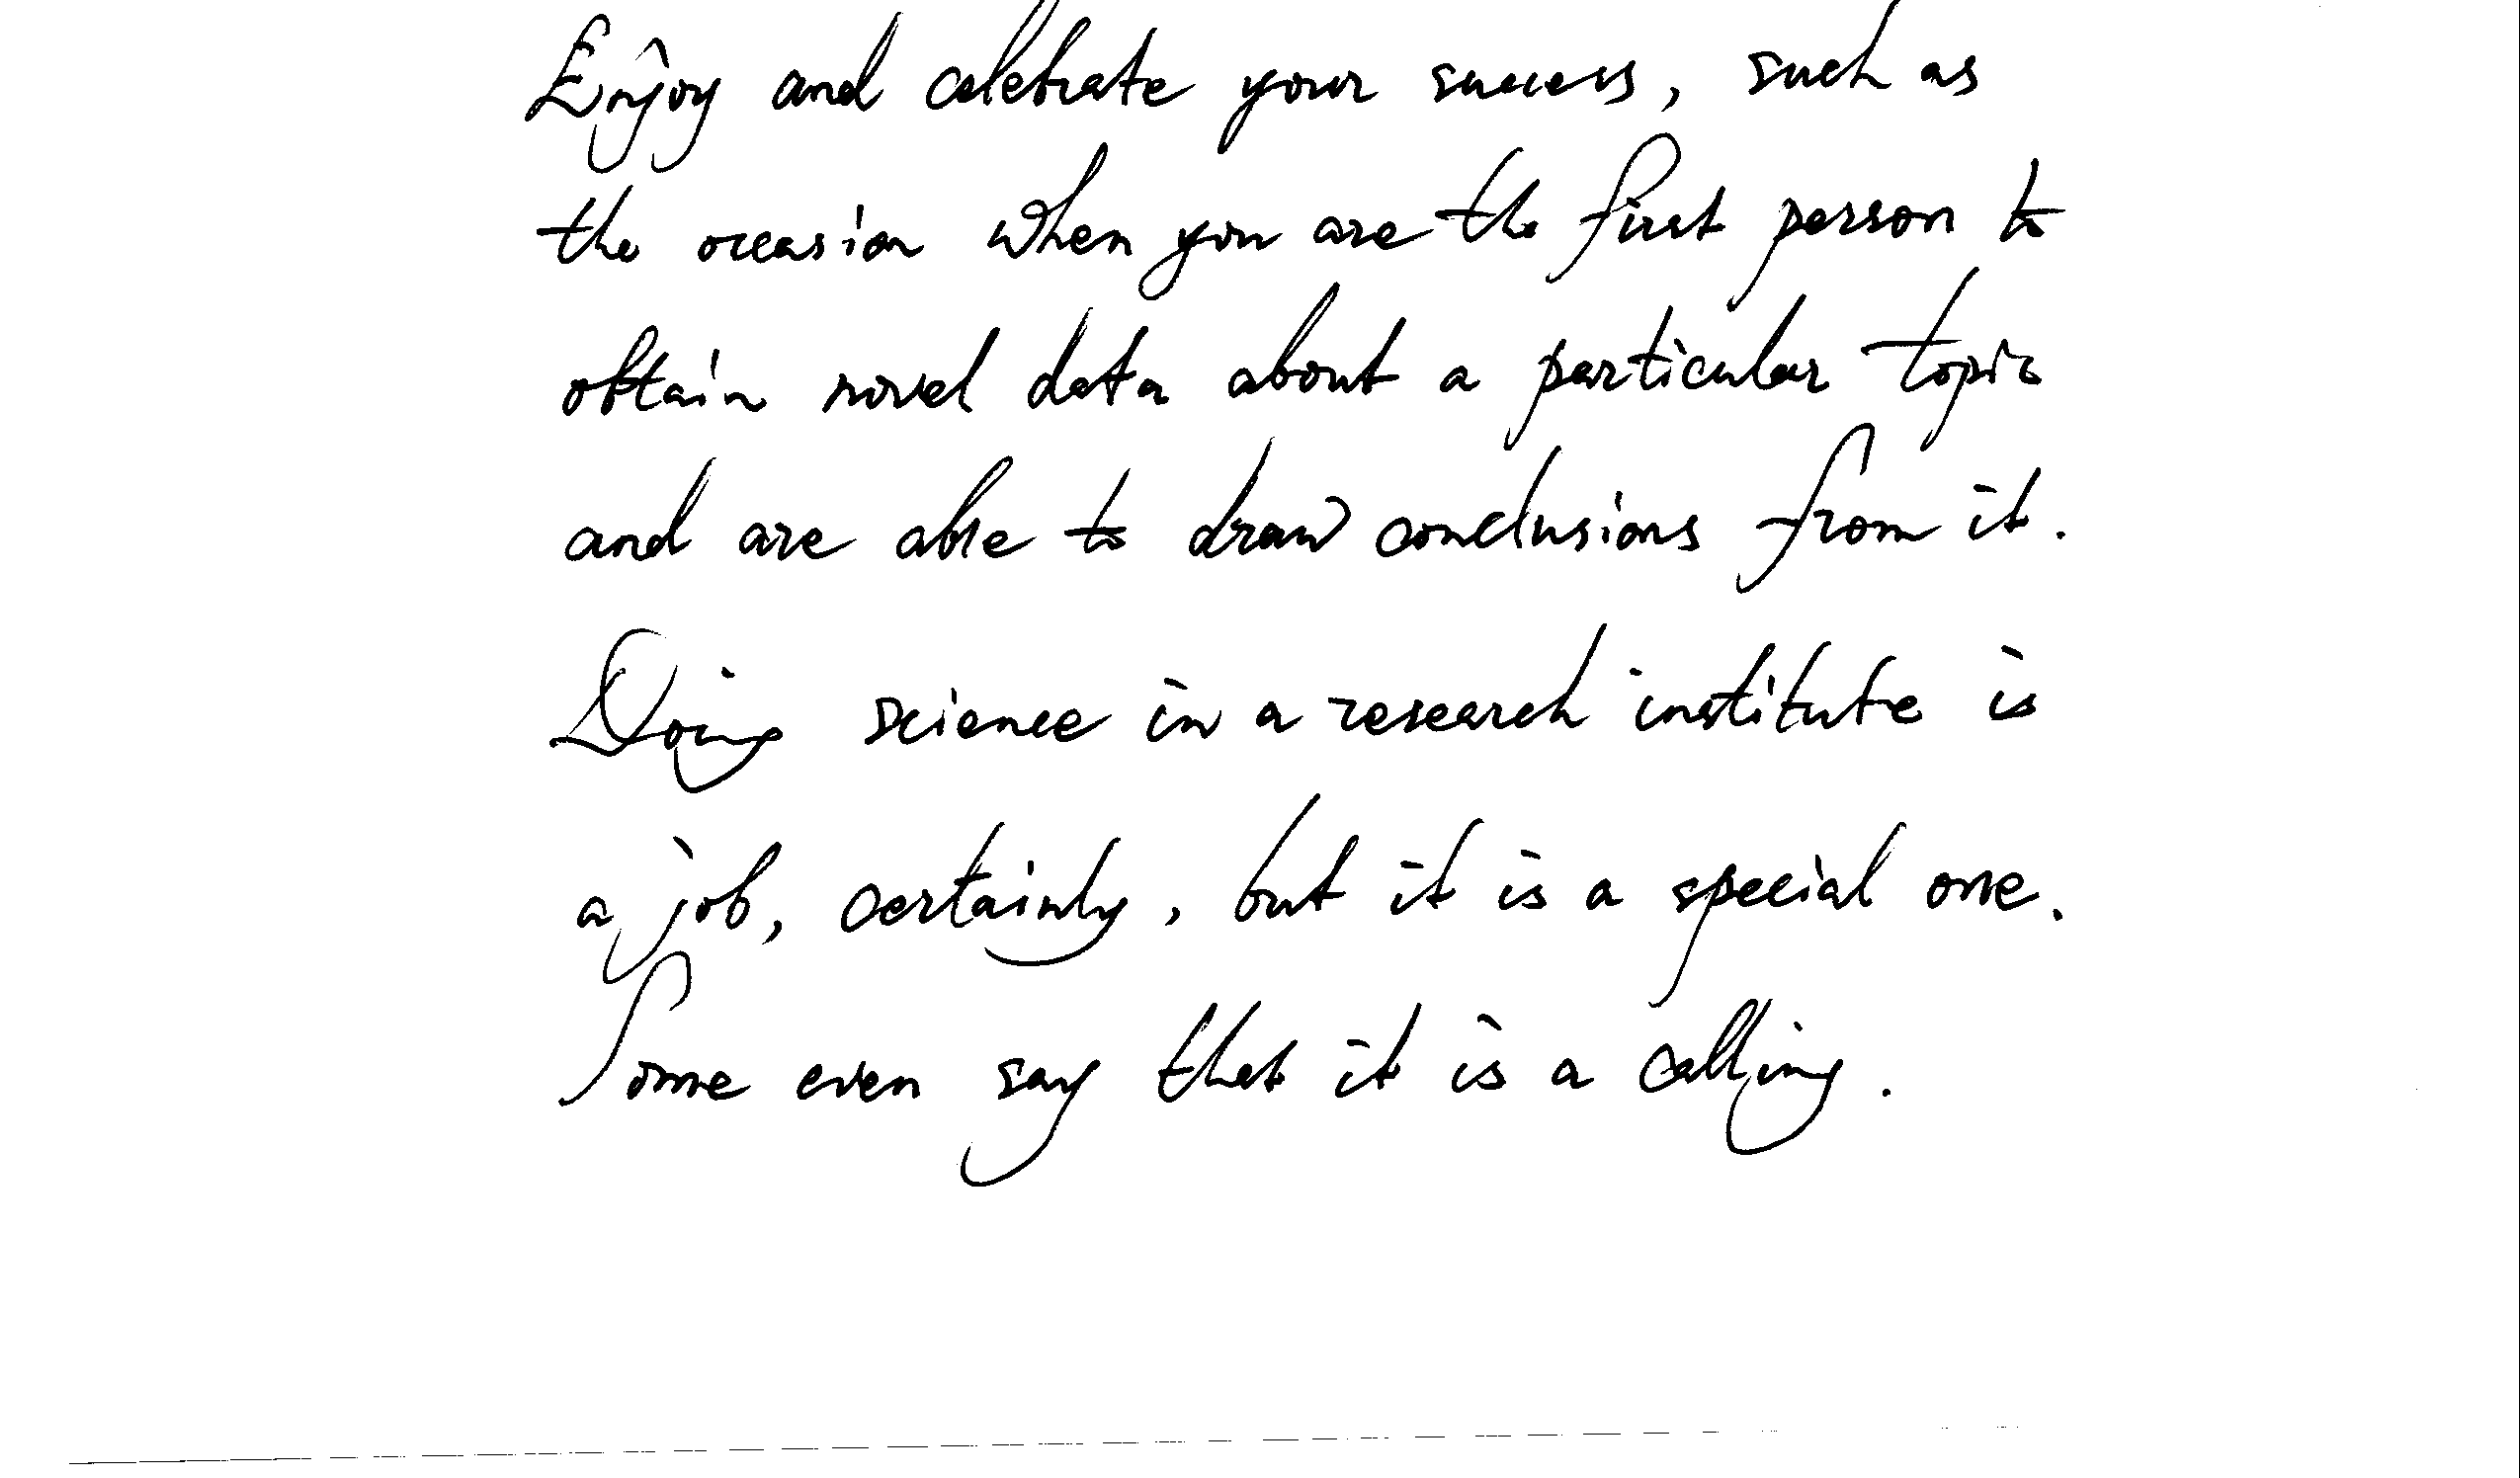 Enjoy and celebrate your success, such as
the occasion when you are the first person to
obtain novel data about a particular topic
and are able to draw conclusions from it.
Doing science in a research institute is
a job, certainly, but it is a special one.
Some even say that it is a calling.